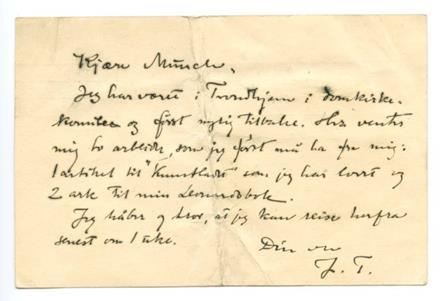 Kjære Munch,
Jeg har været i Trondhjem i domkirke-
komiteen og først nylig tilbake. Her venter
mig to arbeider, som jeg først må ha fra mig:
1 artikel til "Kunstbladet" som jeg har lovet og
2 ark til min Leonardobok.
Jeg håber og tror, at jeg kan reise herfra
senest om 1 uke.
Din ven
J. T.